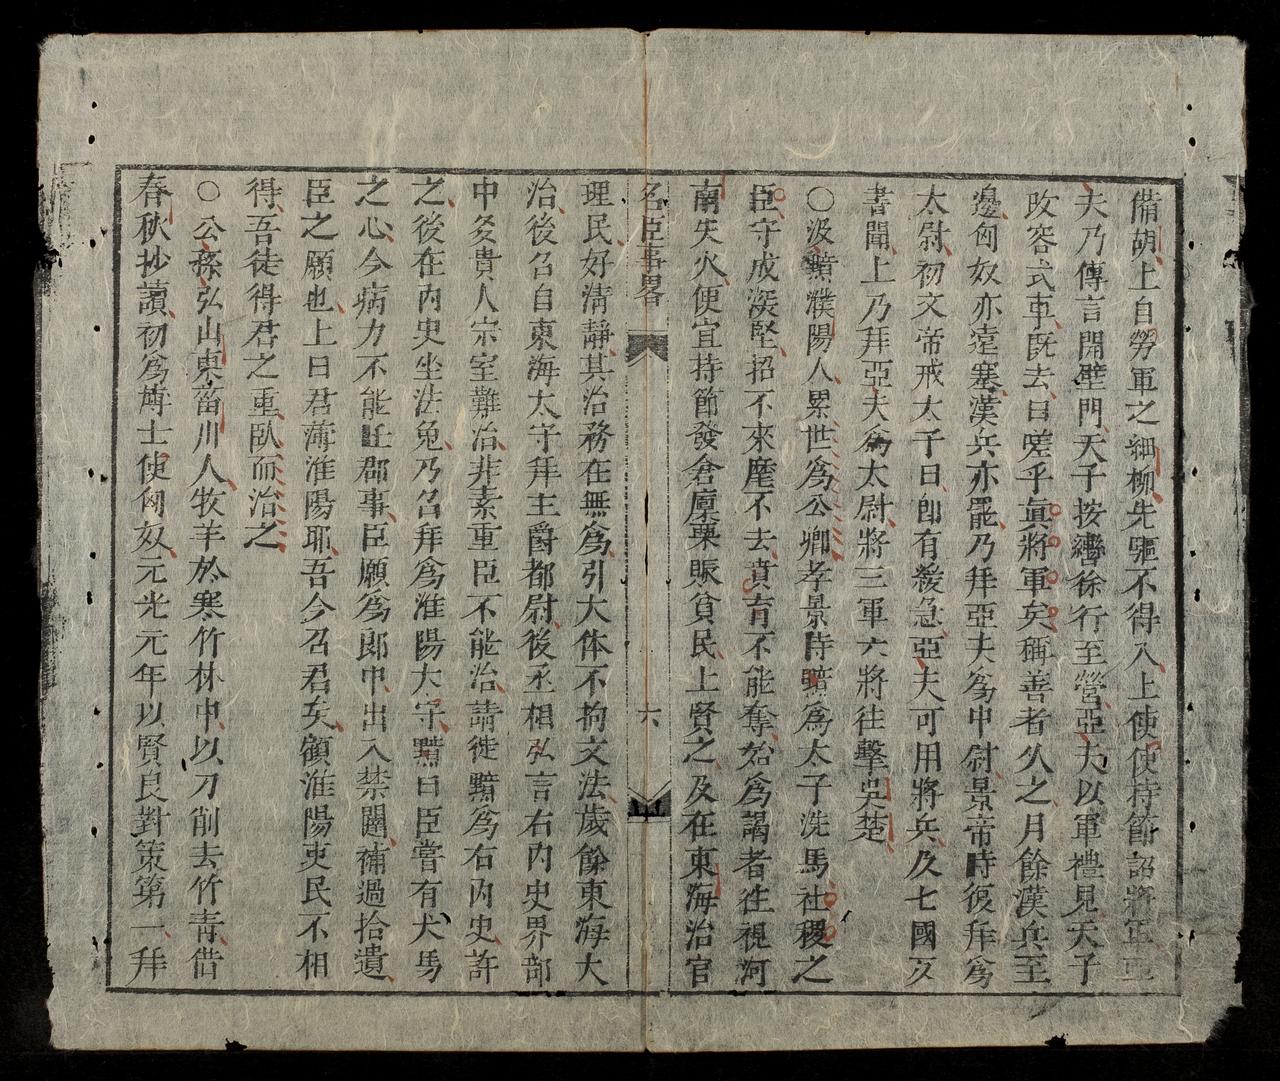 備胡上自勞軍之細柳先驅不得入上使使持節詔將軍亞
夫乃傳言開壁門天子按轡徐行至營亞夫以軍禮見天子
改容式車既去曰嗟乎真將軍矣稱善者久之月餘漢兵至
邊匈奴亦遠塞漢兵亦罷乃拜亞夫為中尉景帝時復拜為
太尉初文帝戒太子曰卽有緩急亞夫可用將兵及七國反
書聞上乃拜亞夫為太尉將三軍六將往擊吳楚
〇汲黯濮陽人累世為公卿孝景時黯為太子洗馬社稷之
臣守成深堅招不來麾不去賁育不能奪始為謁者徃視河
南失火便宜持節發倉廩粟賑貧民上賢之及在東海治官
名臣事畧 六
理民好清靜其治務在無為引大体不拘文法歲餘東海大
治後召自東海太守拜主爵都尉後丞相弘言右內史界部
中多貴人宗室難治非素重臣不能治請徙黯為右內史許
之後在內史坐法免乃召拜為淮陽太守黯曰臣嘗有犬馬
之心今病力不能任郡事臣願為郎中出入禁闥補過拾遺
臣之願也上曰君薄淮陽耶吾今召君矣顧淮陽吏民不相
得吾徒得君之重臥而治之
〇公孫弘山東菑川人牧羊於寒竹林中以刀削去竹青借
春秋抄讀初為博士使匈奴元光元年以賢良對策第一拜